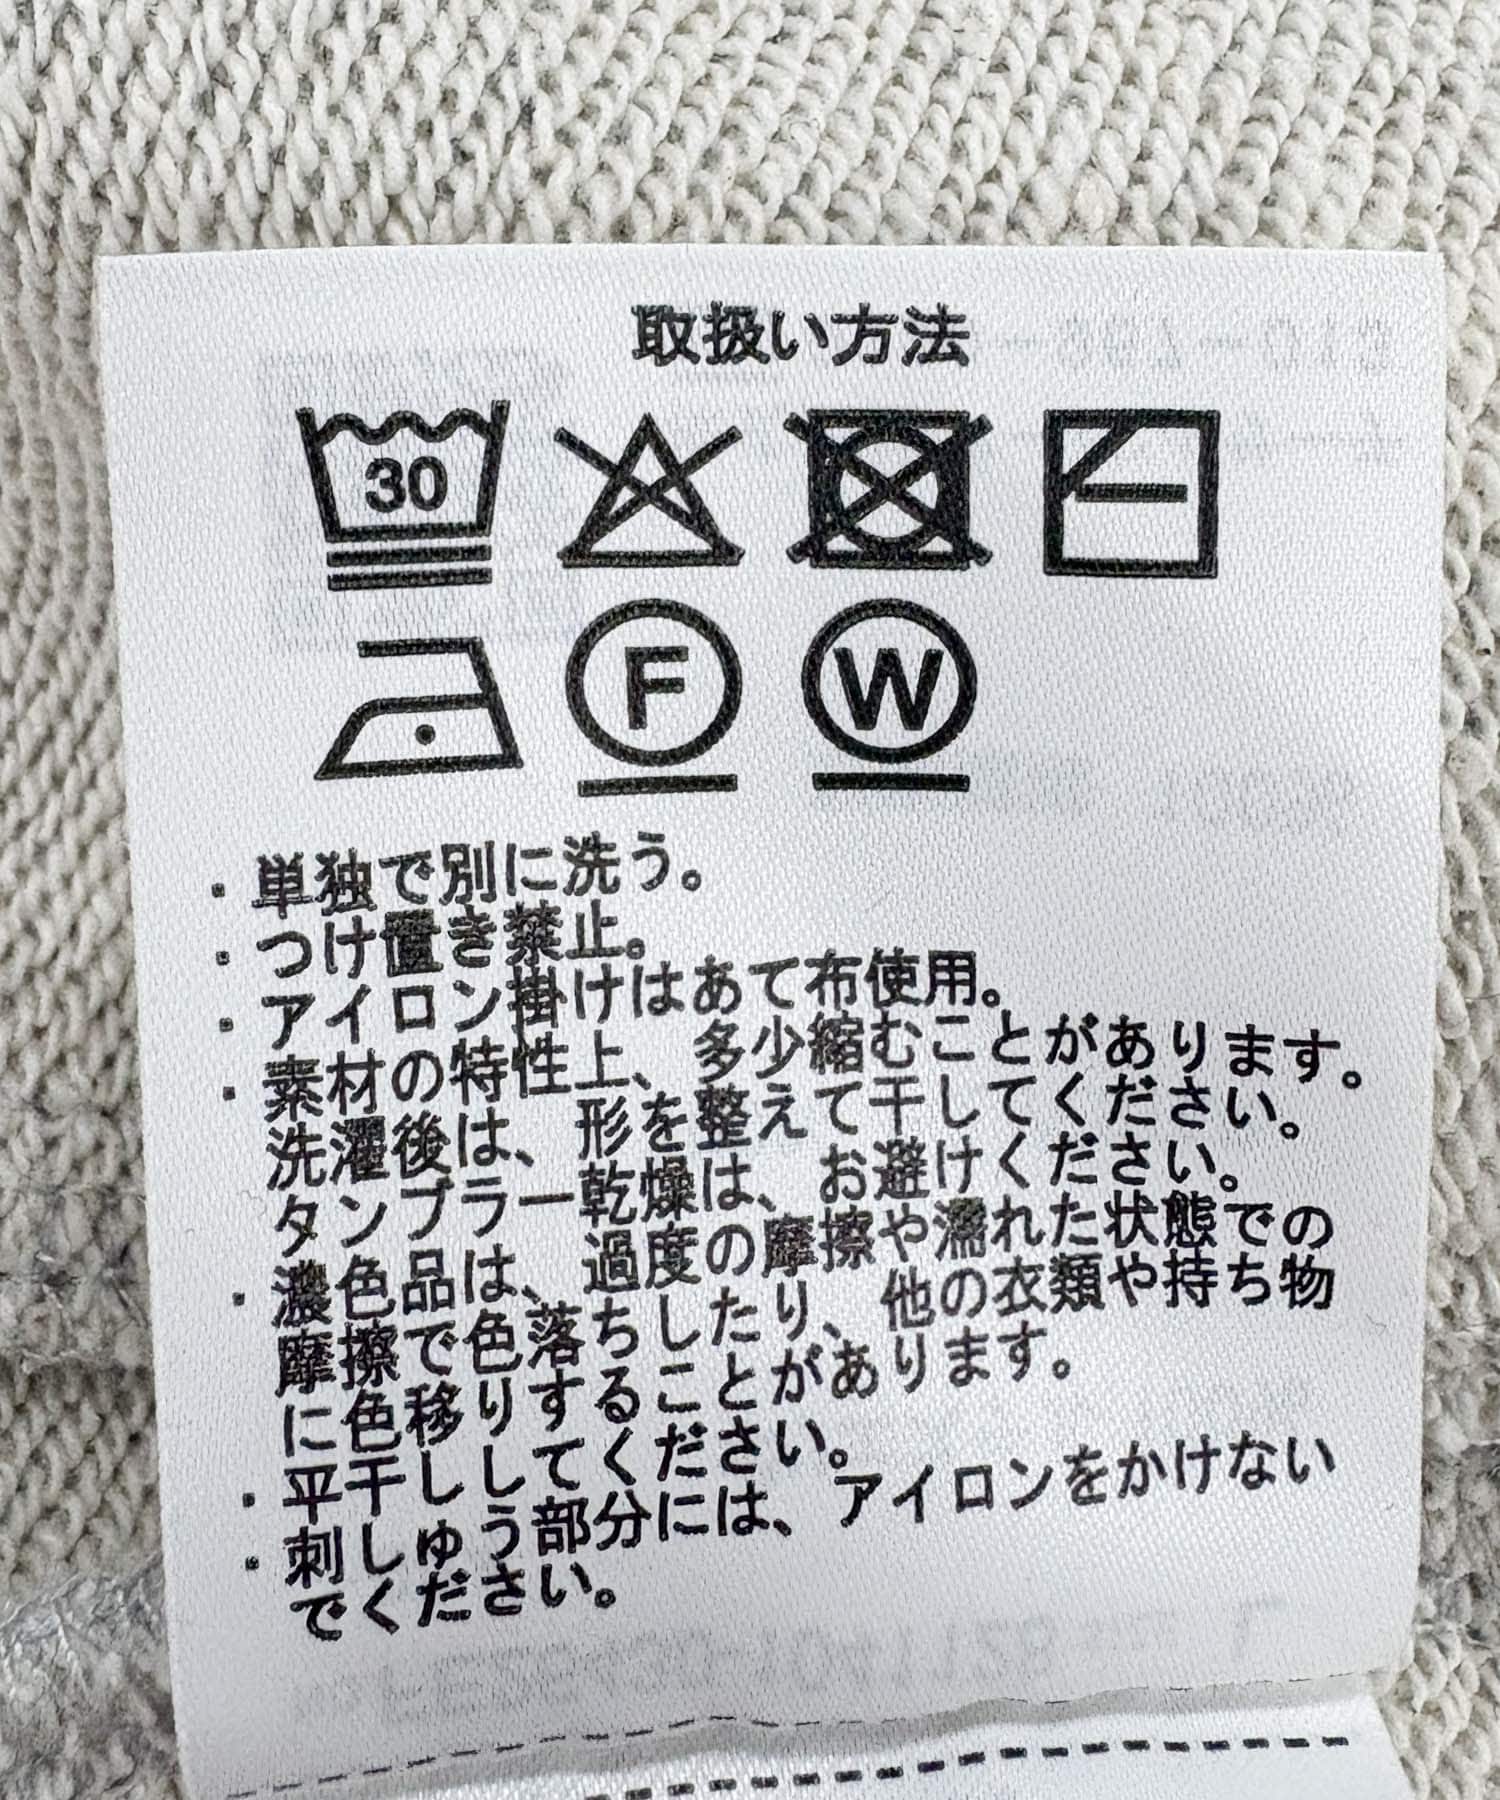 取扱い方法
30
F W
・単独で別に洗う。
・つけ置き禁止。
・アイロン掛けはあて布使用。
・素材の特性上、多少縮むことがあります。
洗濯後は、形を整えて干してください。
タンブラー乾燥は、お避けください。
・濃色品は、過度の摩擦や濡れた状態での
摩擦で色落ちしたり、他の衣類や持ち物
に色移りすることがあります。
・平干ししてください。
・刺しゅう部分には、アイロンをかけない
でください。